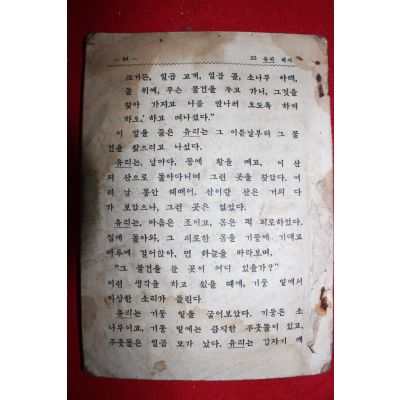 — 84 —
35 유리 태자
크거든, 일곱 고개, 일곱 골, 소나무 아래,
돌 위에, 무슨 물건을 두고 가니, 그것을
찾아 가지고 나를 만나러 오도록 하게
하오.' 하고 떠나셨다."
이 말을 들은 유리는 그 이튿날부터 그 물
건을 찾으려고 나섰다.
유리는, 날마다, 등에 활을 메고, 이 산
저 산으로 돌아다니며 그런 곳을 찾았다. 여
러 날 동안 헤매어, 산이란 산은 거의 다
가 보았으나, 그런 곳은 없었다.
유리는, 마음은 조이고, 몸은 퍽 피로하였다.
집에 돌아와, 그 피로한 몸을 기둥에 기대고
마루에 걸어앉아, 먼 하늘을 바라보며,
"그 물건을 둔 곳이 어디 있을가?"
이런 생각을 하고 있을 때에, 기둥 밑에서
이상한 소리가 들린다
유리는 기둥 밑을 굽어보았다. 기둥은 소
나무이고, 기둥 밑에는 큼직한 주춧돌이 있고,
주춧돌은 일곱 모가 났다. 유리는 갑자기 깨